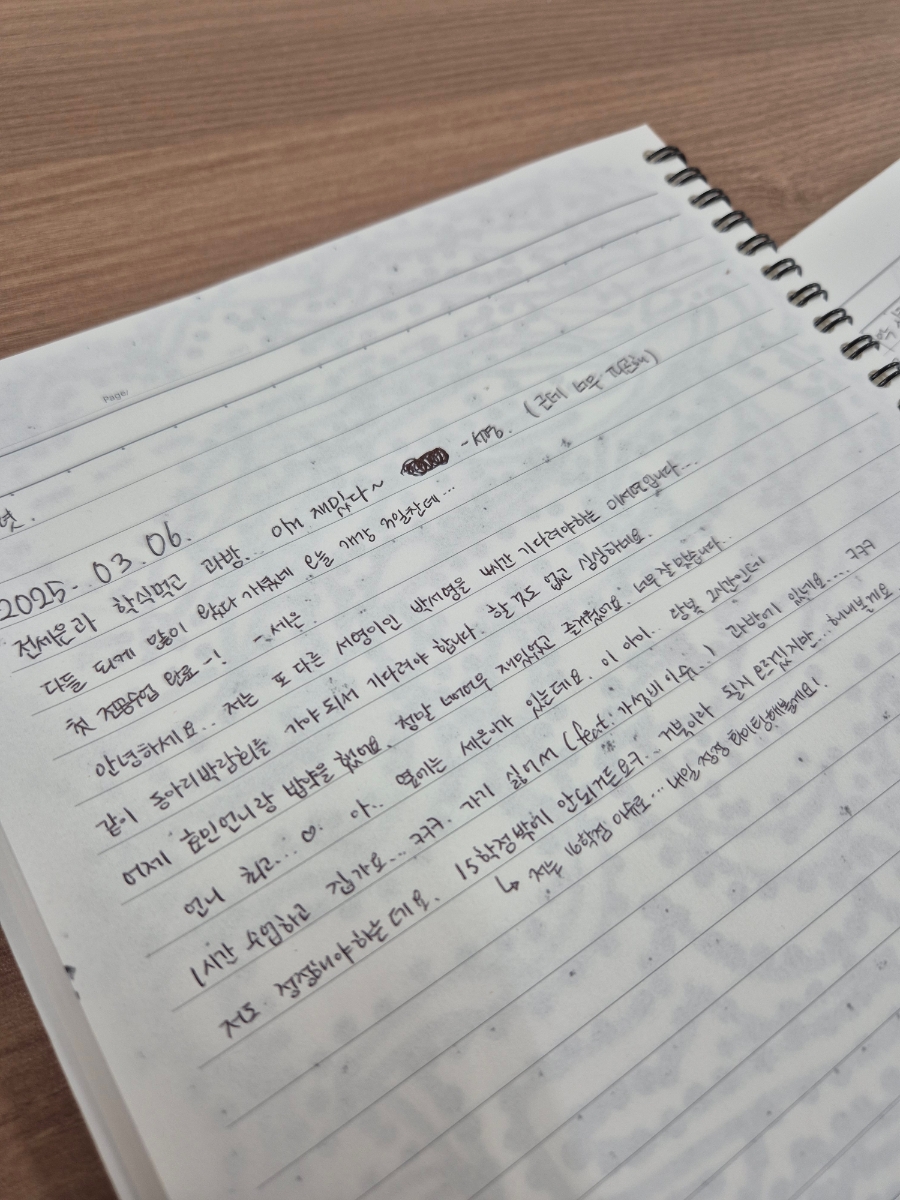 Page/
2025. 03. 06.
전세은과 학식먹고 과방... 아 재밌다~ -서영. (근데 너무 피곤해)
다들 되게 많이 왔다 가셨네 오늘 개강 n일찬데...
첫 전공수업 완료-! -세은.
안녕하세요.. 저는 또다른 서영이인 박서영을 4시간 기다려야하는 이서영입니다...
같이 동아리박람회를 가야 되서 기다려야 합니다. 할 것도 없고 심심하네요.
어제 효민언니랑 밥약을 했어요. 정말 너어무 재밌었고 즐거웠어요. 너무 잘 맞습니다..
언니 최고... ♡. 아.. 옆에는 세은이가 있는데요. 이 아이.. 왕복 2시간인데
1시간 수업하고 집가요... ㅋㅋㅋ. 가기 싫어서 (feat. 가성비 이슈..) 과방에 있네요.... ㅋㅋㅋ
저도 정정해야하는데요. 15학점밖에 안되거든요ㅋ.. 거북이라 될지 모르겠지만... 해내볼게요
↳ 저는 16학점 이슈로... 내일 정정 화이팅해볼게요!